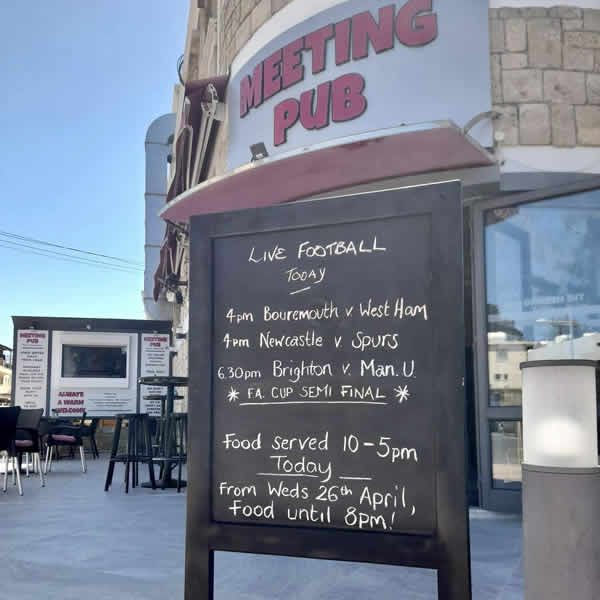 MEETING
PUB
LIVE FOOTBALL
TODAY
4pm Bouremouth v West Ham
4pm Newcastle v Spurs
6.30pm Brighton v Man. U.
* F.A. CUP SEMI FINAL *
Food served 10-5pm
Today
From Weds 26th April,
Food until 8pm!
MEETING
PUB
ALWAYS
A WARM
WELCOME
MEETING
PUB